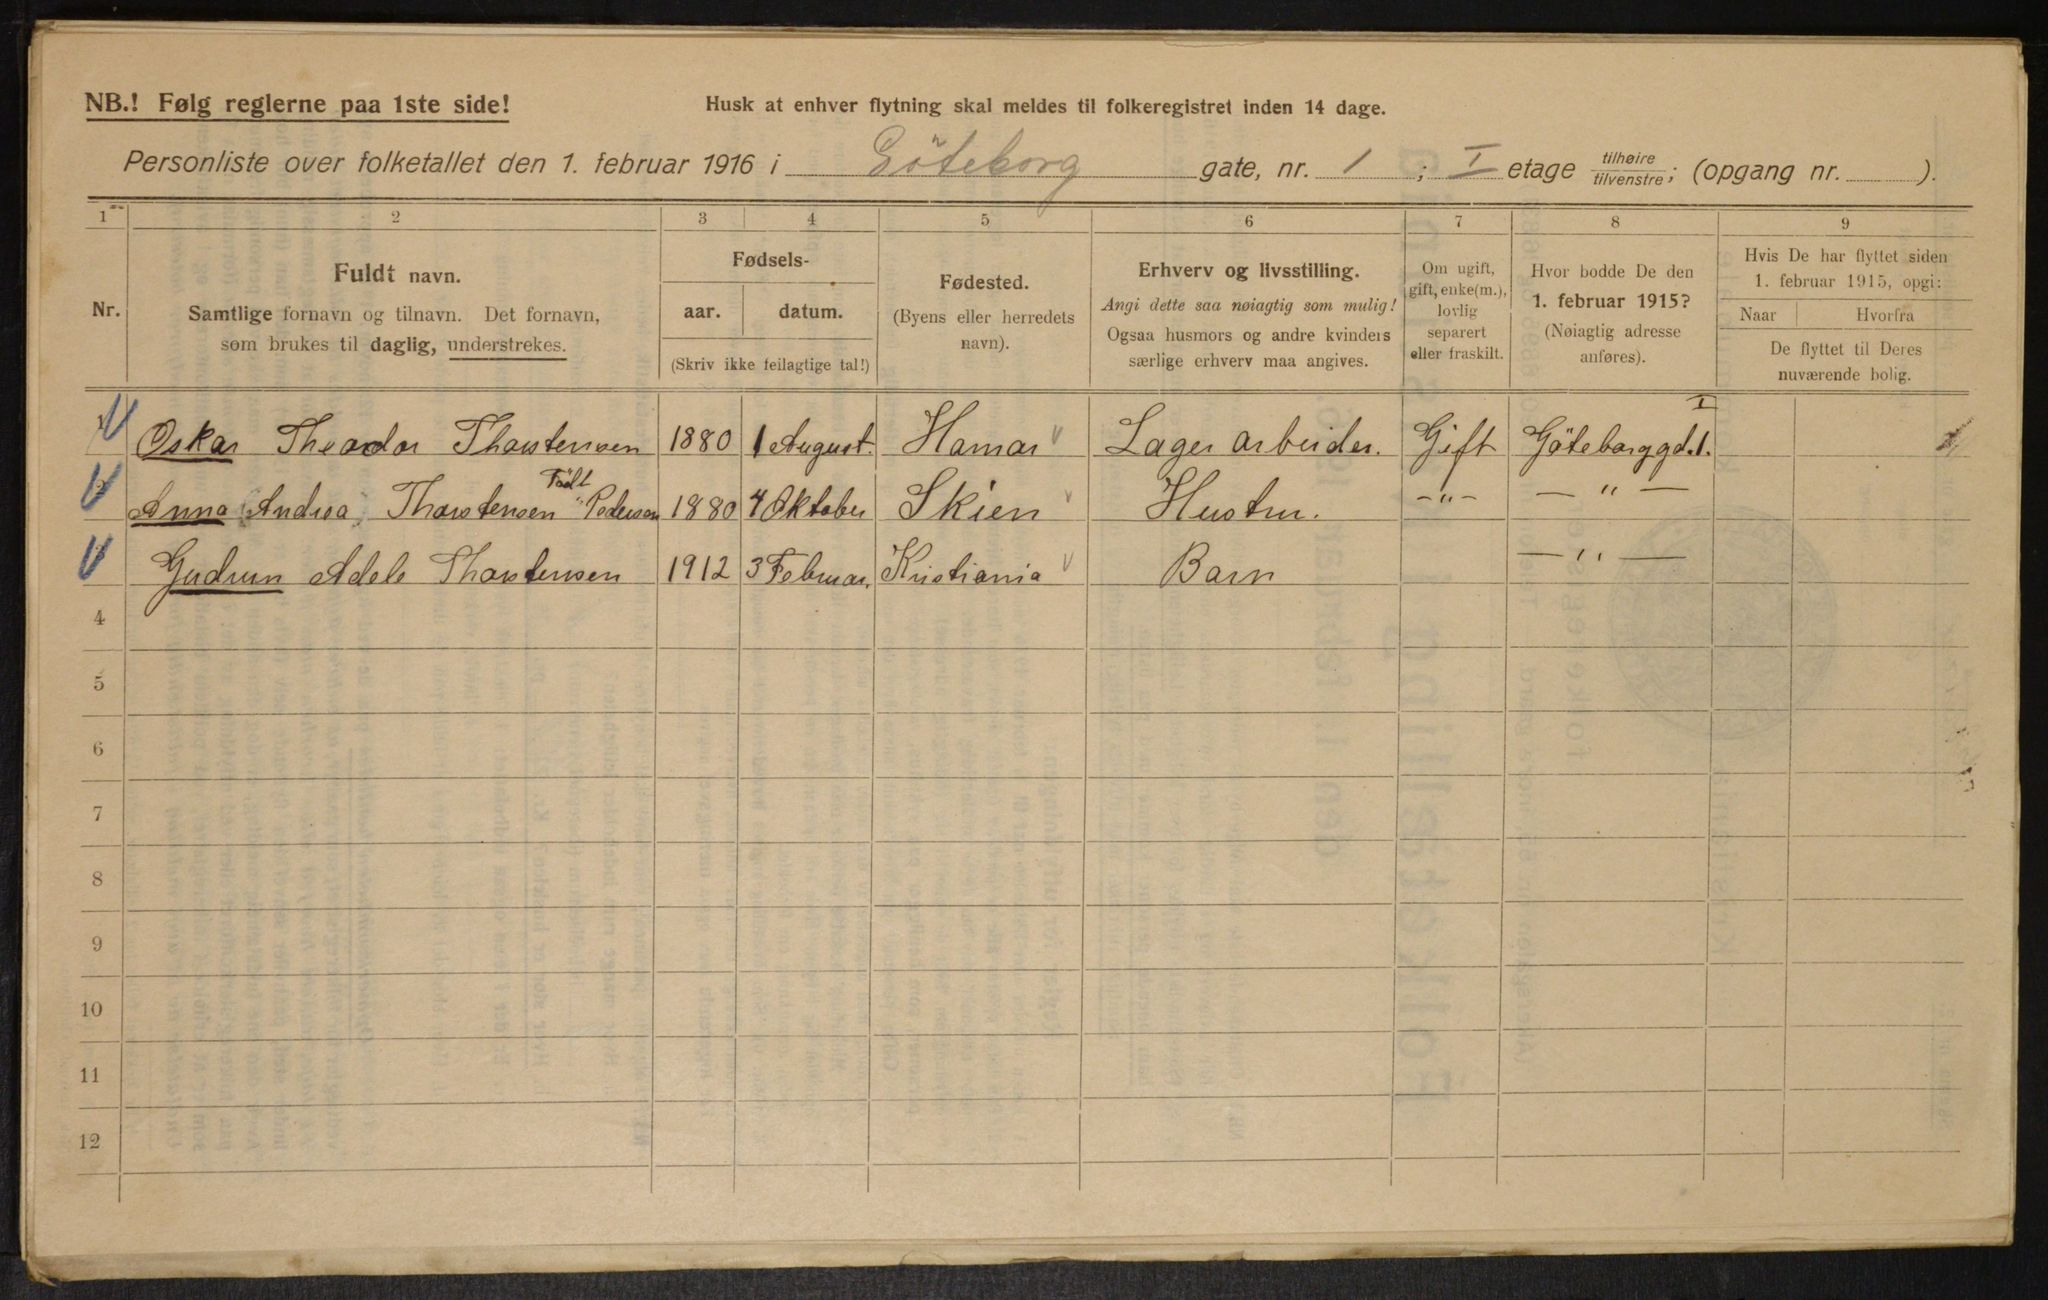 NB.! Følg reglerne paa 1ste side!
Husk at enhver flytning skal meldes til folkeregistret inden 14 dage.
Personliste over folketallet den 1. februar 1916 i Göteborg gate, nr. 1 ; I etage tilhøire tilvenstre; (opgang nr. ).
1 2 3 4 5 6 7 8 9
Nr.
Fuldt navn.
Samtlige fornavn og tilnavn. Det fornavn,
som brukes til daglig, understrekes.
Fødsels-
aar. datum.
(Skriv ikke feilagtige tal!)
Fødested.
(Byens eller herredets
navn).
Erhverv og livsstilling.
Angi dette saa nøiagtig som mulig!
Ogsaa husmors og andre kvinders
særlige erhverv maa angives.
Om ugift,
gift, enke(m.),
lovlig
separert
eller fraskilt.
Hvor bodde De den
1. februar 1915?
(Nøiagtig adresse
anføres).
Hvis De har flyttet siden
1. februar 1915, opgi:
Naar Hvorfra
De flyttet til Deres
nuværende bolig.
Oskar Theodor Thorstensen 1880 1 August. Hamar Lager arbeider. Gift Göteborggd. 1. I
Anna Andrea Thorstensen Födt Pedersen 1880 4 Oktober Skien Hustru. -"- - " -
Gudrun Adele Thorstensen 1912 3 Februar. Kristiania Barn - " -
4
5
6
7
8
9
10
11
12